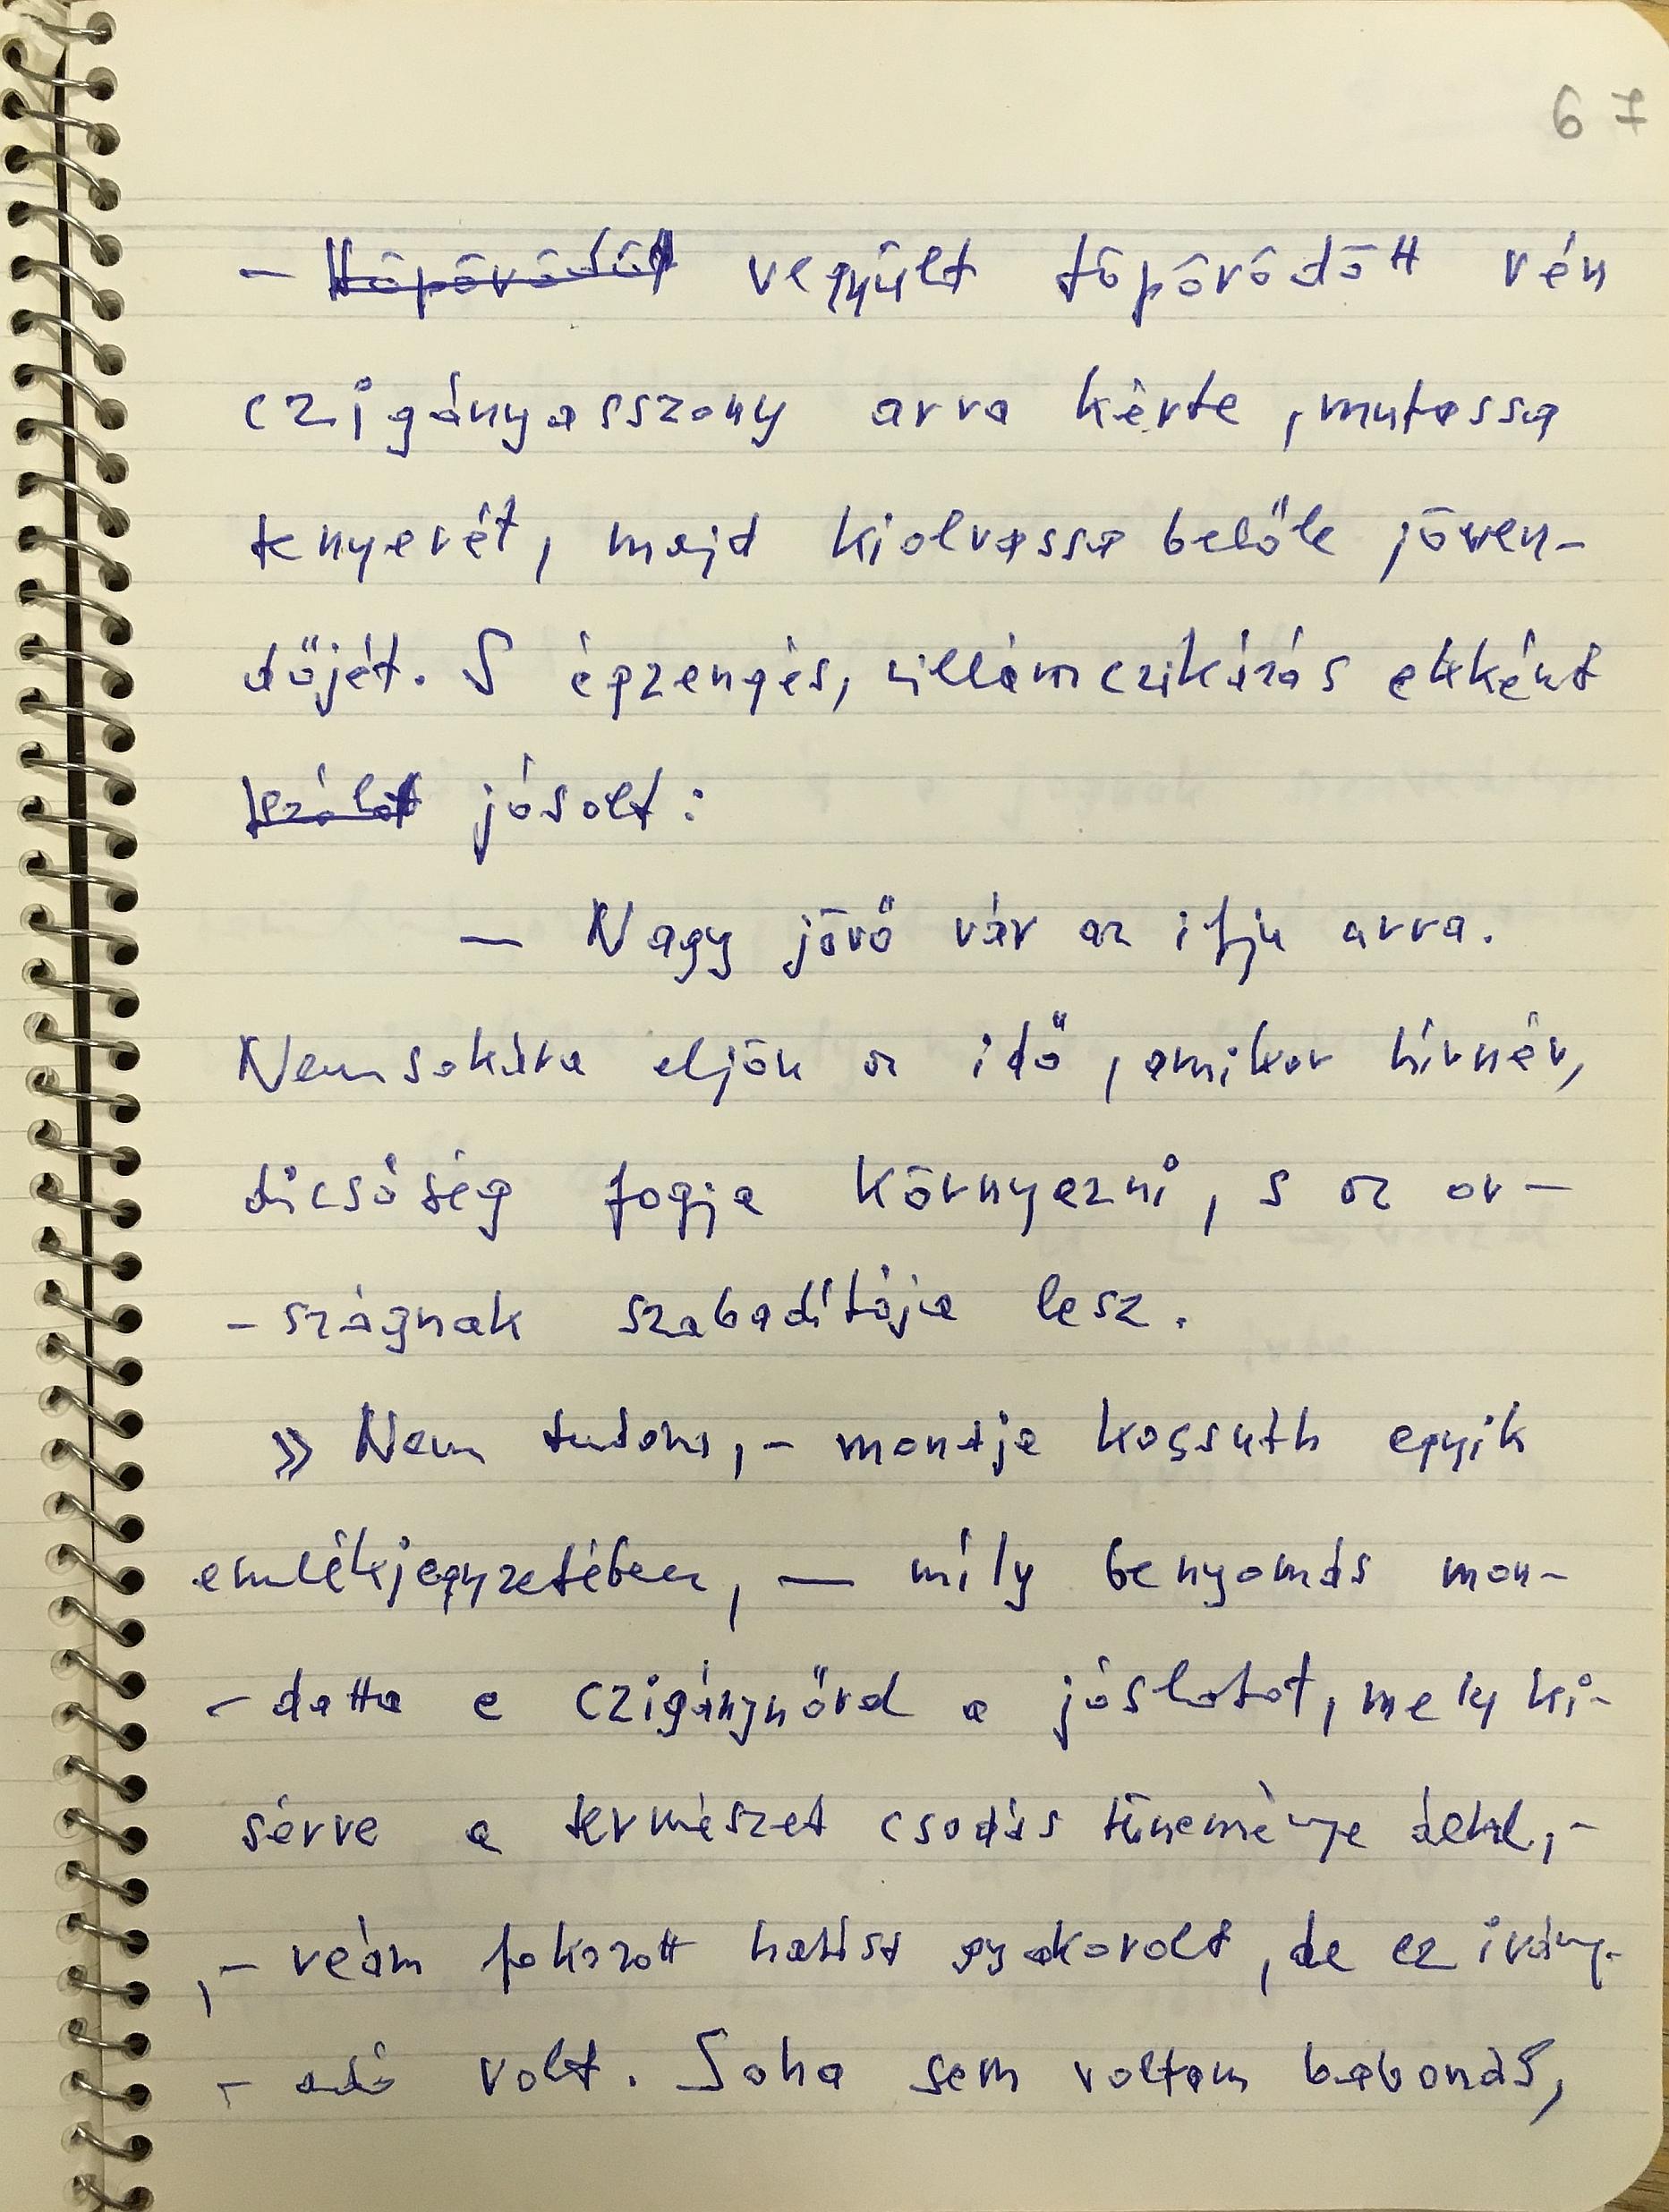 67
- ~~töpörödöt~~ vegyült töpörödött vén
czigányasszony arra kérte, mutassa
tenyerét, majd kiolvassa belőle jöven-
dőjét. S égzengés, villámczikázás ekként
jósolt:
— Nagy jövő vár az ifju urra.
Nemsokára eljön az idő, amikor hírnév,
dicsőség fogja környezni, s az or-
- szágnak szabadítója lesz.
» Nem tudom, - mondja Kossuth egyik
emlékjegyzetében, — mily benyomás mon-
- datta e czigánynővel a jóslatot, mely ki-
sérve a természet csodás tüneménye által, -
, - reám fokozott hatást gyakorolt, de ez irány-
- adó volt. Soha sem voltam babonás,